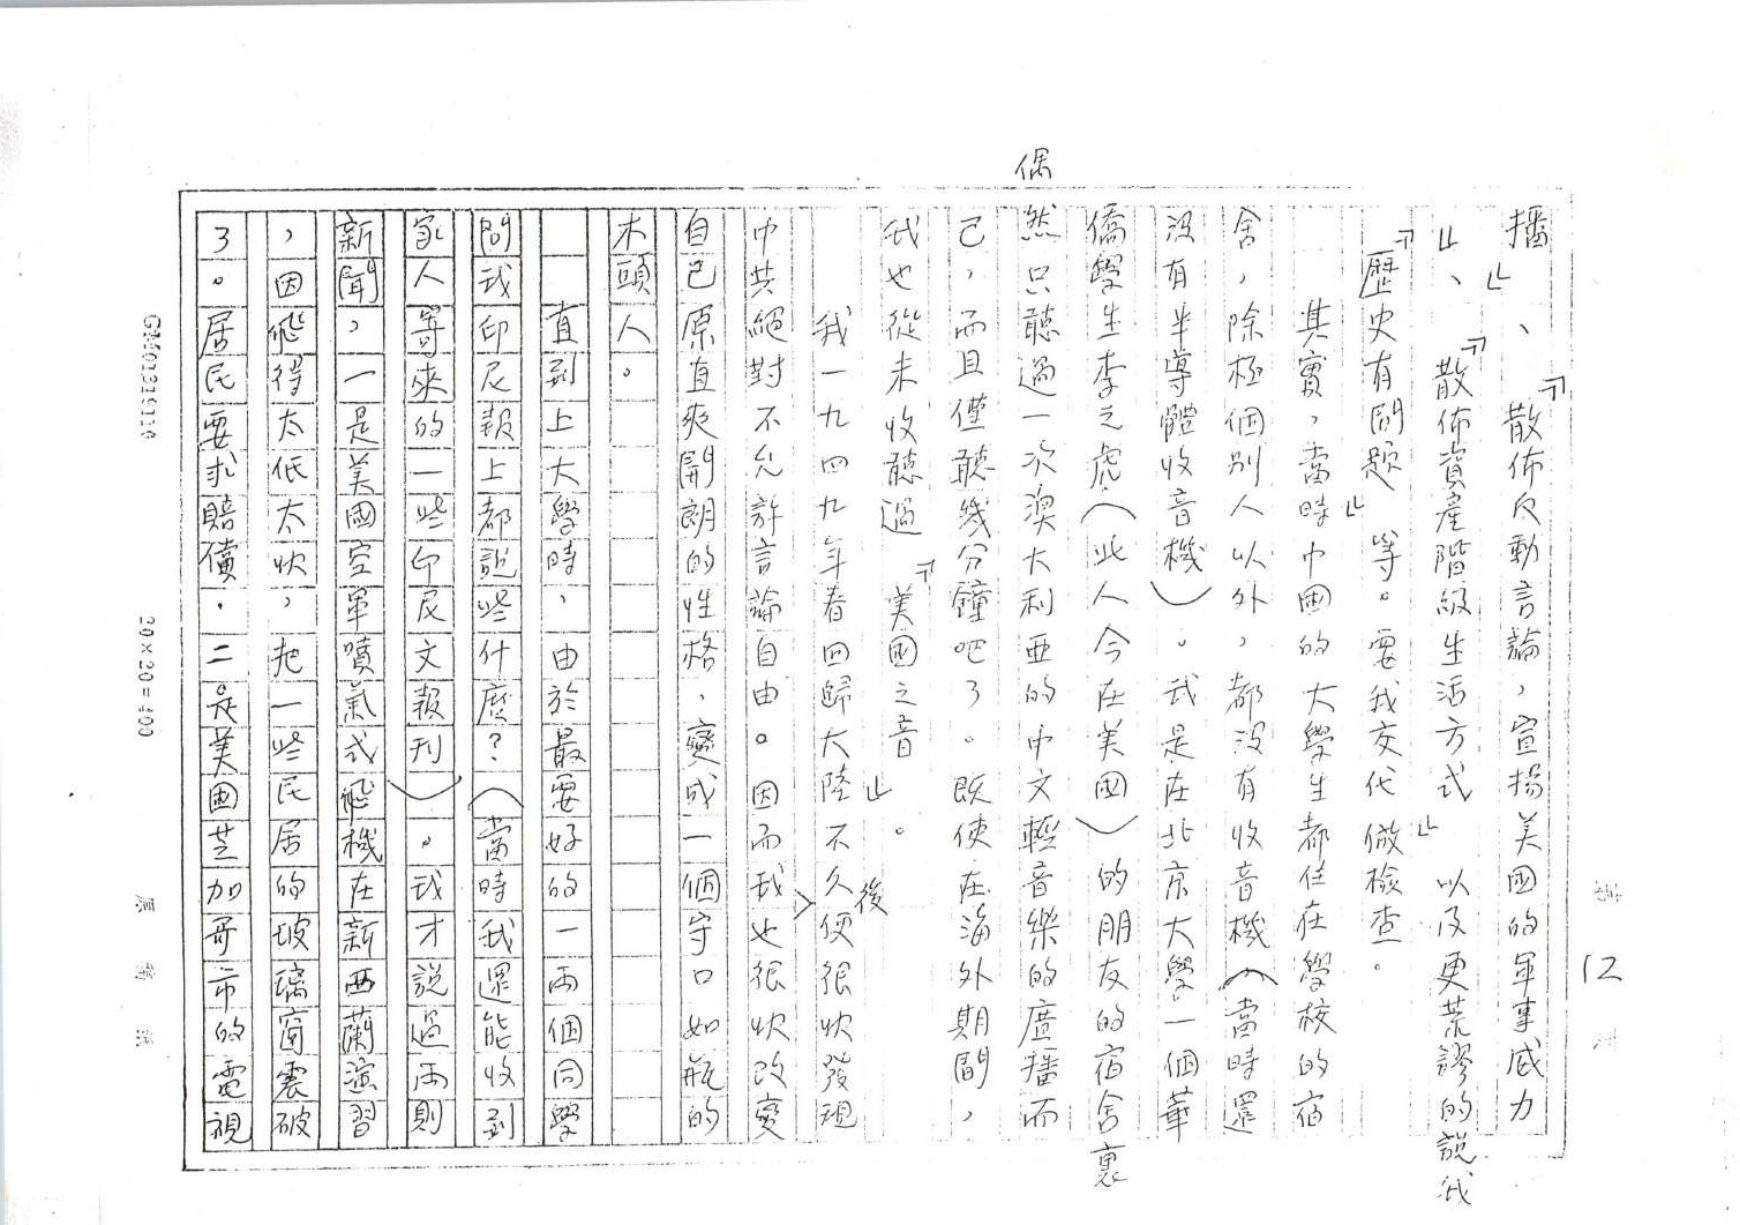 播』、『散佈反動言論，宣揚美國的軍事威力
』、『散佈資產階級生活方式』以及更荒謬的說我
『歷史有問題』等。要我交代做檢查。
其實，當時中國的大學生都住在學校的宿
舍，除極個別人以外，都沒有收音機（當時還
沒有半導體收音機）。我是在北京大學一個華
僑學生李之虎（此人今在美國）的朋友的宿舍裏
偶然只聽過一次澳大利亞的中文輕音樂的廣播而
已，而且僅聽幾分鐘吧了。既使在海外期間，
我也從未收聽過『美國之音』。
我一九四九年春回歸大陸不久後便很快發現
中共絕對不允許言論自由。因而我也很快改變
自己原直爽開朗的性格，變成一個守口如瓶的
木頭人。
直到上大學時，由於最要好的一兩個同學
問我印尼報上都說些什麼？（當時我還能收到
家人寄來的一些印尼文報刊）。我才說過兩則
新聞，一是美國空軍噴氣式飛機在新西蘭演習
，因飛得太低太快，把一些民居的玻璃窗震破
了。居民要求賠償．二是美國芝加哥市的電視
12
20×20=400